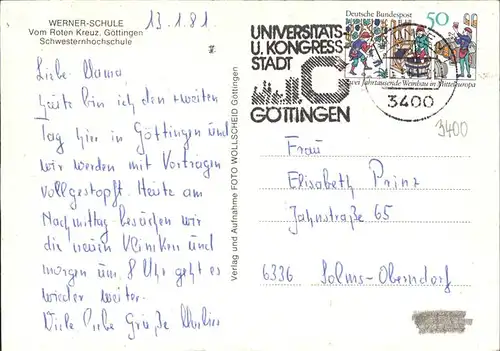 WERNER-SCHULE
Vom Roten Kreuz, Göttingen
Schwesternhochschule
13.1.81.
Liebe Mama,
heute bin ich den zweiten
Tag hier in Göttingen und
wir werden mit Vorträgen
vollgestopft. Heute am
Nachmittag besuchen wir
die neuen Kliniken und
morgen um 8 Uhr geht es
wieder weiter.
Viele liebe Grüße
Verlag und Aufnahme FOTO WOLLSCHEID Göttingen
UNIVERSITÄTS
U. KONGRESS
STADT
GÖTTINGEN
Deutsche Bundespost 50
Zwei Jahrtausende Weinbau in Mitteleuropa
3400
3400
Frau
Elisabeth Prinz
Jahnstraße 65
6336 Solms-Oberndorf